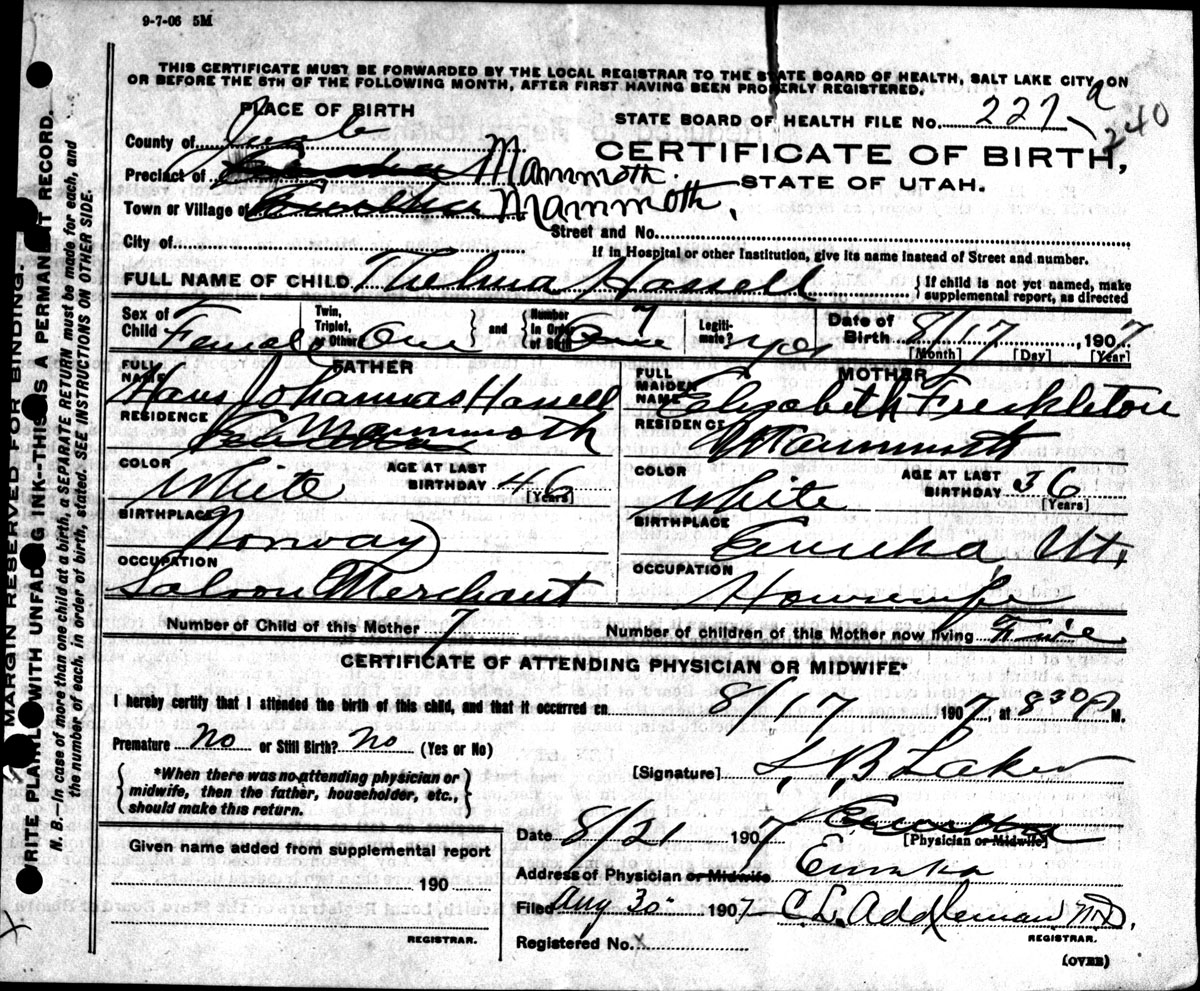 9-7-06 5M
THIS CERTIFICATE MUST BE FORWARDED BY THE LOCAL REGISTRAR TO THE STATE BOARD OF HEALTH, SALT LAKE CITY, ON
OR BEFORE THE 5TH OF THE FOLLOWING MONTH, AFTER FIRST HAVING BEEN PROPERLY REGISTERED.
PLACE OF BIRTH
STATE BOARD OF HEALTH FILE NO. 227 a
240
County of Juab
CERTIFICATE OF BIRTH,
Precinct of Mammoth.
STATE OF UTAH.
Town or Village of Eureka Mammoth.
Street and No.
City of
If in Hospital or other Institution, give its name instead of Street and number.
FULL NAME OF CHILD Thelma Hassell
{ If child is not yet named, make
supplemental report, as directed
Sex of Child Female
Twin, Triplet, or Other One } and { Number in Order of Birth One 7
Legitimate? Yes
Date of Birth 8/17, 1907
[Month] [Day] [Year]
FATHER
FULL NAME Hans Johannas Hassell
RESIDENCE Mammoth
COLOR White
AGE AT LAST BIRTHDAY 46
[Years]
BIRTHPLACE Norway
OCCUPATION Saloon Merchant
MOTHER
FULL MAIDEN NAME Elizabeth Freckleton
RESIDENCE Mammoth
COLOR White
AGE AT LAST BIRTHDAY 36
[Years]
BIRTHPLACE Eureka Ut.
OCCUPATION Housewife
Number of Child of this Mother 7
Number of children of this Mother now living Five
CERTIFICATE OF ATTENDING PHYSICIAN OR MIDWIFE*
I hereby certify that I attended the birth of this child, and that it occurred on 8/17 1907, at 8 30 P M.
Premature No or Still Birth? No (Yes or No)
{ *When there was no attending physician or
midwife, then the father, householder, etc.,
should make this return. }
[Signature] B Laker
Eureka
[Physician or Midwife]
Date 8/21 1907
Given name added from supplemental report
190
REGISTRAR.
Address of Physician or Midwife Eureka
Filed Aug 30 1907 C. E. Addleman M.D.
REGISTRAR.
Registered No. X
(OVER)
MARGIN RESERVED FOR BINDING.
WRITE PLAINLY WITH UNFADING INK--THIS IS A PERMANENT RECORD.
N. B.—In case of more than one child at a birth, a SEPARATE RETURN must be made for each, and
the number of each, in order of birth, stated. SEE INSTRUCTIONS ON OTHER SIDE.